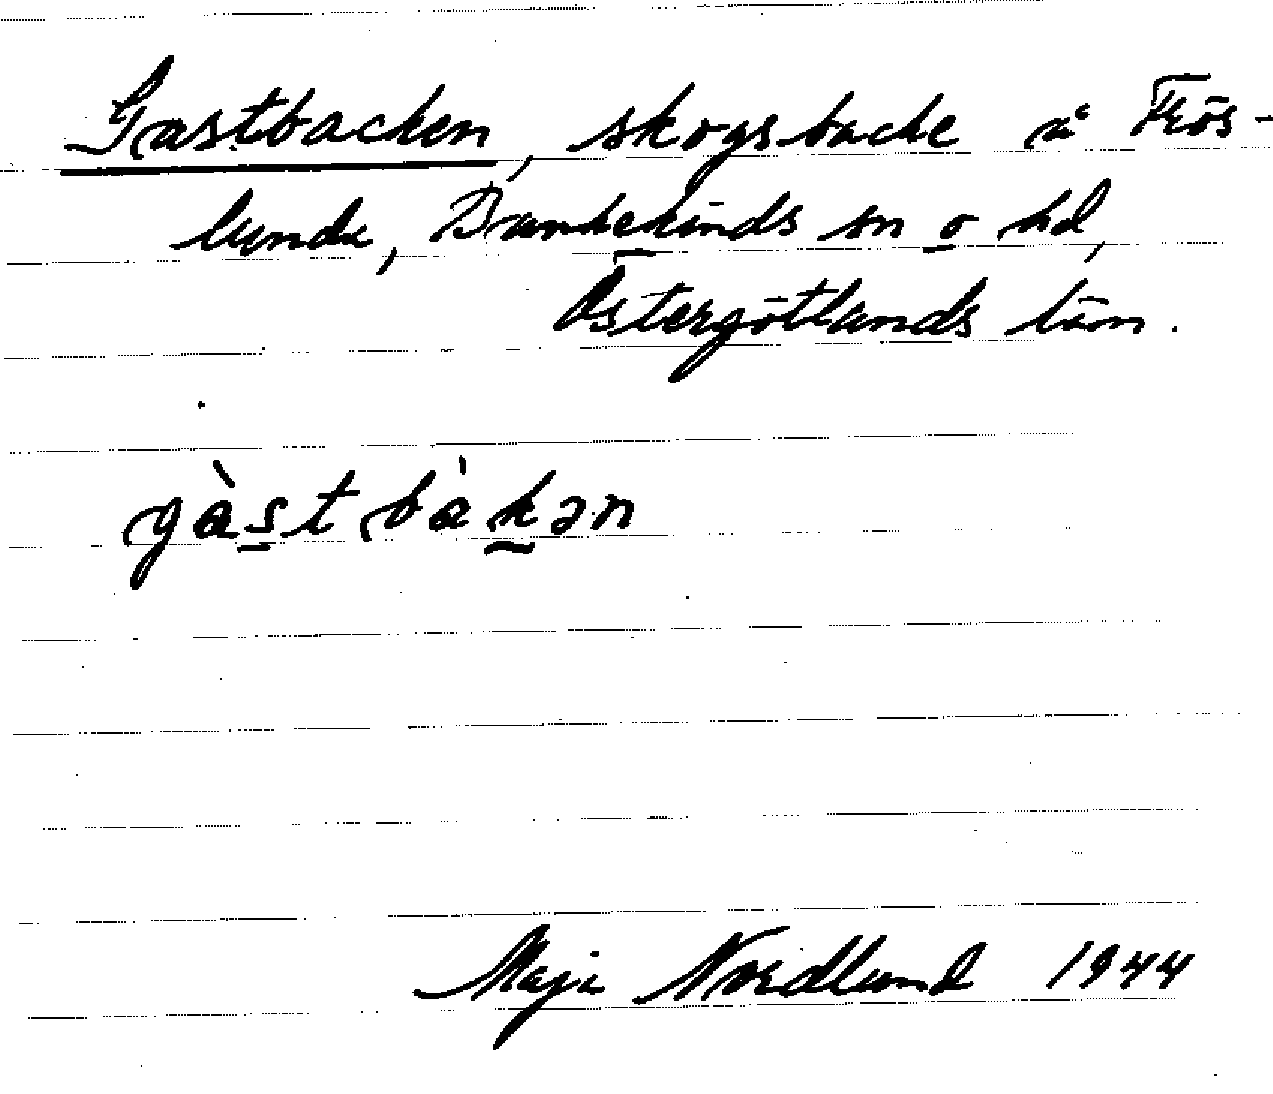 Gastbacken, skogsbacke å Frös-
lunda, Bankekinds sn o hd,
Östergötlands län.
gàstbàkən
Maja Nordlund 1944